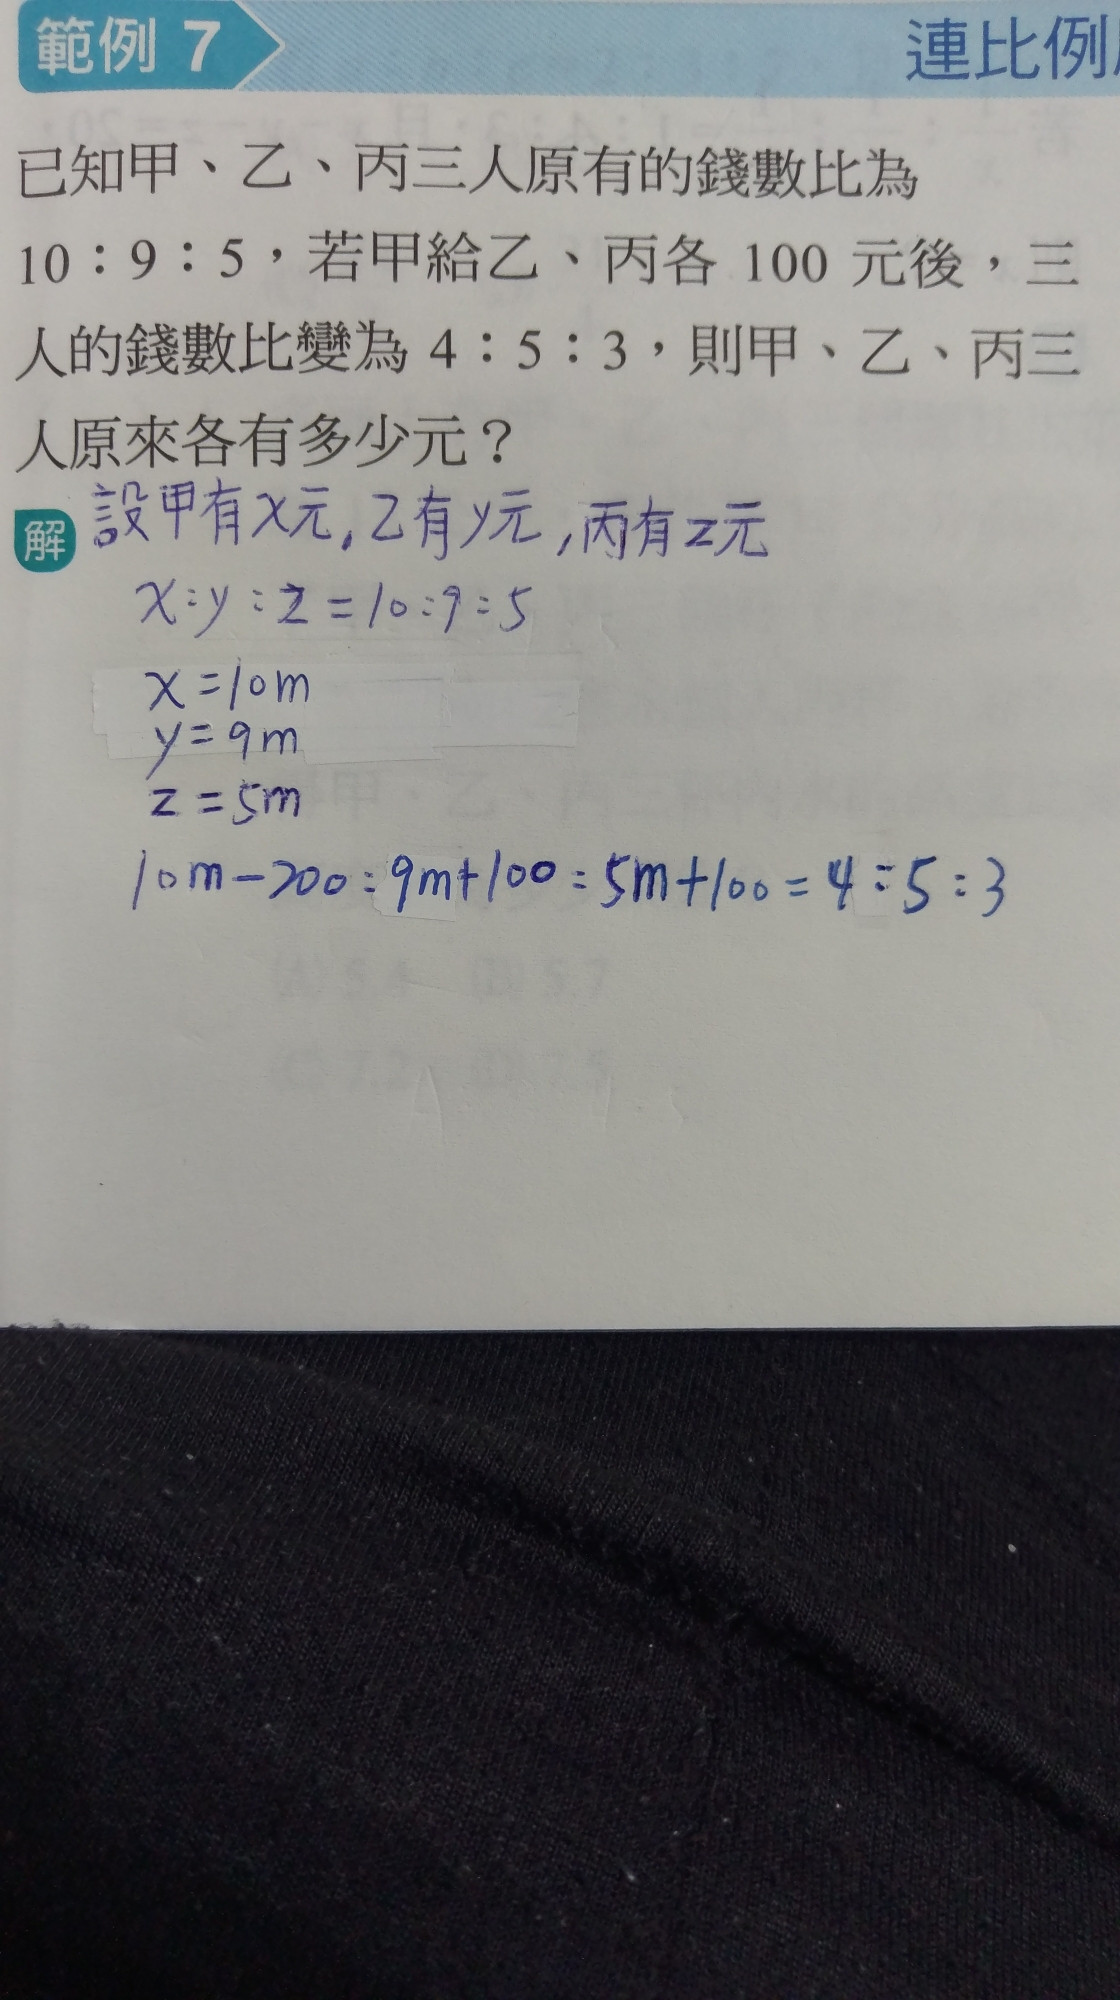 範例 7
連比例
已知甲、乙、丙三人原有的錢數比為
10:9:5,若甲給乙、丙各 100 元後,三
人的錢數比變為 4:5:3,則甲、乙、丙三
人原來各有多少元?
解
設甲有x元,乙有y元,丙有z元
x:y:z=10:9:5
x=10m
y=9m
z=5m
10m-200:9m+100:5m+100=4:5:3